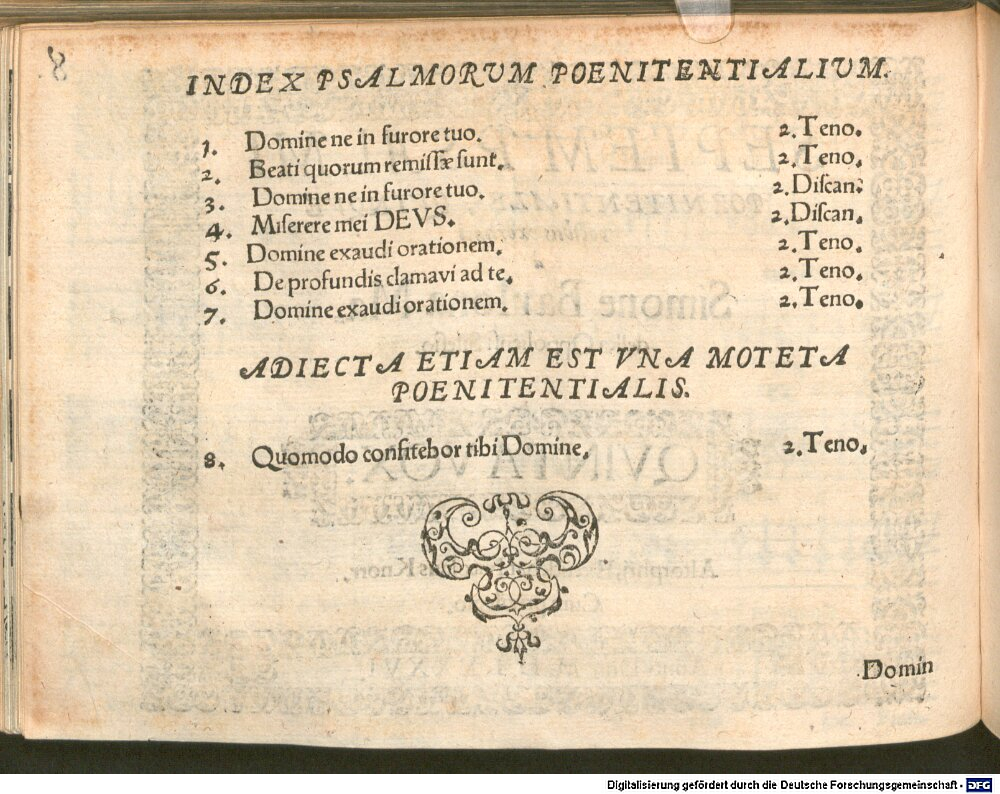 8.
INDEX PSALMORVM POENITENTIALIVM.
1. Domine ne in furore tuo. 2. Teno.
2. Beati quorum remissæ sunt. 2. Teno.
3. Domine ne in furore tuo. 2. Discan.
4. Miserere mei DEVS. 2. Discan.
5. Domine exaudi orationem. 2. Teno.
6. De profundis clamavi ad te. 2. Teno.
7. Domine exaudi orationem. 2. Teno.
ADIECTA ETIAM EST VNA MOTETA
POENITENTIALIS.
8. Quomodo confitebor tibi Domine. 2. Teno.
Domin
Digitalisierung gefördert durch die Deutsche Forschungsgemeinschaft - DFG